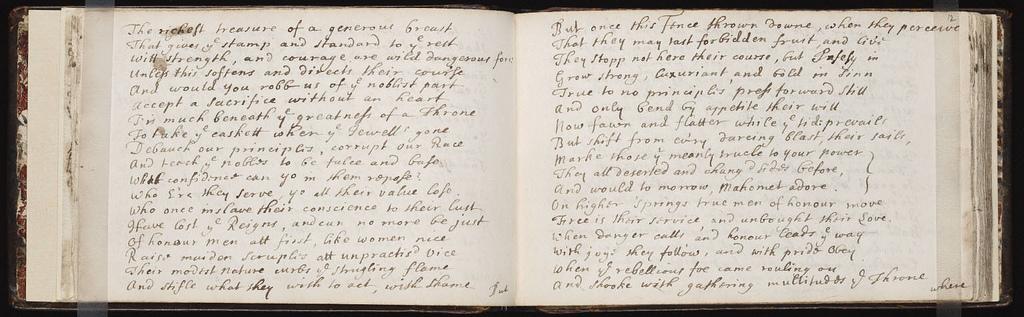 The richest treasure of a generous breast
That gives yᵉ stamp and standard to yᵉ rest
Witt strength, and courage are wild dangerous force
Unless this softens and directs their course
And would you robb us of yᵉ noblist part
Accept a sacrifice without an heart
Tis much beneath yᵉ greatness of a Throne
To take yᵉ caskett when yᵉ Jewell's gone
Debauch our principles, corrupt our Race
And teach yᵉ nobles to be false and base
What confidence can yo in them repose
Who E're they serve, yo all their value lose
Who once inslave their conscience to their lust
Have lost yᵉ Reigns, and can no more be just
Of honour men att first, like women nice
Raise maiden scruples att unpractis'd vice
Their modest nature curbs yᵉ strugling flame
And stifle what they wish to act, with shame
But
12
But once this Fence thrown downe, when they perceive
That they may tast forbidden fruit and live
They stopp not here their course, but safely in
Grow strong, Luxuriant and bold in sinn
True to no principles press forward still
And only bend by appetite their will
Now fawn and flatter while yᵉ tide prevails
But shift from every dareing blast, their sails
Marke those yᵗ meanly trucle to your power
They all deserted and chang'd sides before,
And would to morrow, Mahomet adore.
On higher springs true men of honour move
Free is their service and unbought their Love.
When danger calls and honour leads yᵉ way
With joye they follow, and with pride obey
When yᵉ rebellious foe came rouling on
And shooke with gathering multitudes yᵉ Throne
where